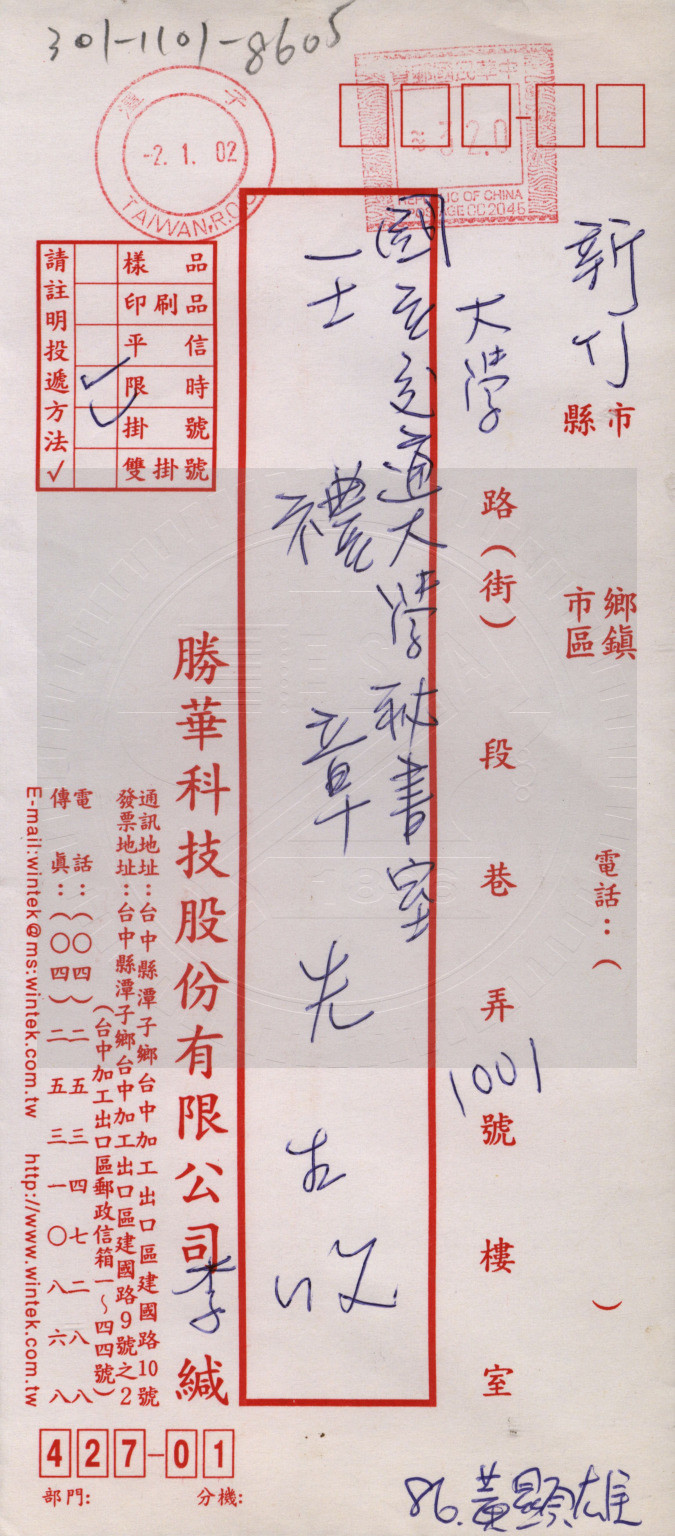 301-1101-8605
潭子
-2.1.02
TAIWAN,R.O.C
中華民國郵資
≈32.0
REPUBLIC OF CHINA
POSTAGE CC2045
新竹
縣市
鄉鎮
市區
電話：（ ）
大學路（街） 段 巷 弄 1001號 樓 室
國立交通大學秘書室
禮章先生 收
請註明投遞方法✓
樣品
印刷品
平信
限時
掛號
雙掛號
勝華科技股份有限公司 李 緘
通訊地址：台中縣潭子鄉台中加工出口區建國路10號
發票地址：台中縣潭子鄉台中加工出口區建國路9號之2
（台中加工出口區郵政信箱一～四四號）
電話：（〇四）二五三四七二八八
傳眞：（〇四）二五三一〇八六八
E-mail:wintek@ms:wintek.com.tw http://www.wintek.com.tw
427-01
部門: 分機:
86.黃顯雄